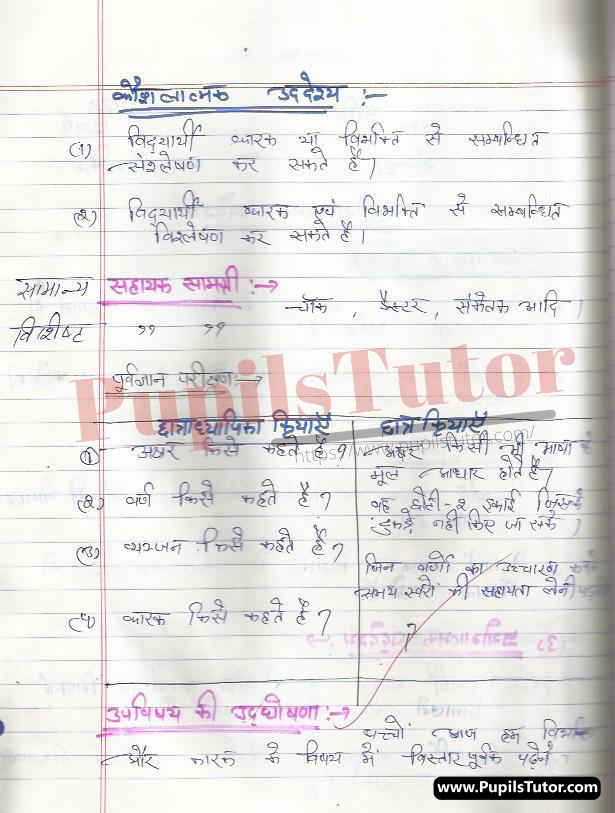 कौशलात्मक उद्देश्य :-
(1) विद्यार्थी कारक या विभक्ति से सम्बन्धित
संश्लेषण कर सकते हैं।
(2) विद्यार्थी कारक एवं विभक्ति से सम्बन्धित
विश्लेषण कर सकते हैं।
सामान्य सहायक सामग्री :→
चॉक , डैस्टर, संकेतक आदि।
विशिष्ट ,, ,,
पूर्वज्ञान परीक्षण:→
PupilsTutor
छात्राध्यापिका क्रियाएँ छात्र क्रियाएँ
(1) अक्षर किसे कहते हैं? अक्षर किसी भी भाषा के
मूल आधार होते हैं।
(2) वर्ण किसे कहते हैं? वह छोटी-2 इकाई जिसके
टुकड़े नहीं किए जा सके।
(3) व्यञ्जन किसे कहते हैं?
जिन वर्णों का उच्चारण करते
समय स्वरों की सहायता लेनी पड़े
(4) कारक किसे कहते हैं? ?
उपविषय की उद्घोषणा:→
बच्चों आज हम विभक्ति
और कारक के विषय में विस्तारपूर्वक पढ़ेंगे
www.PupilsTutor.com